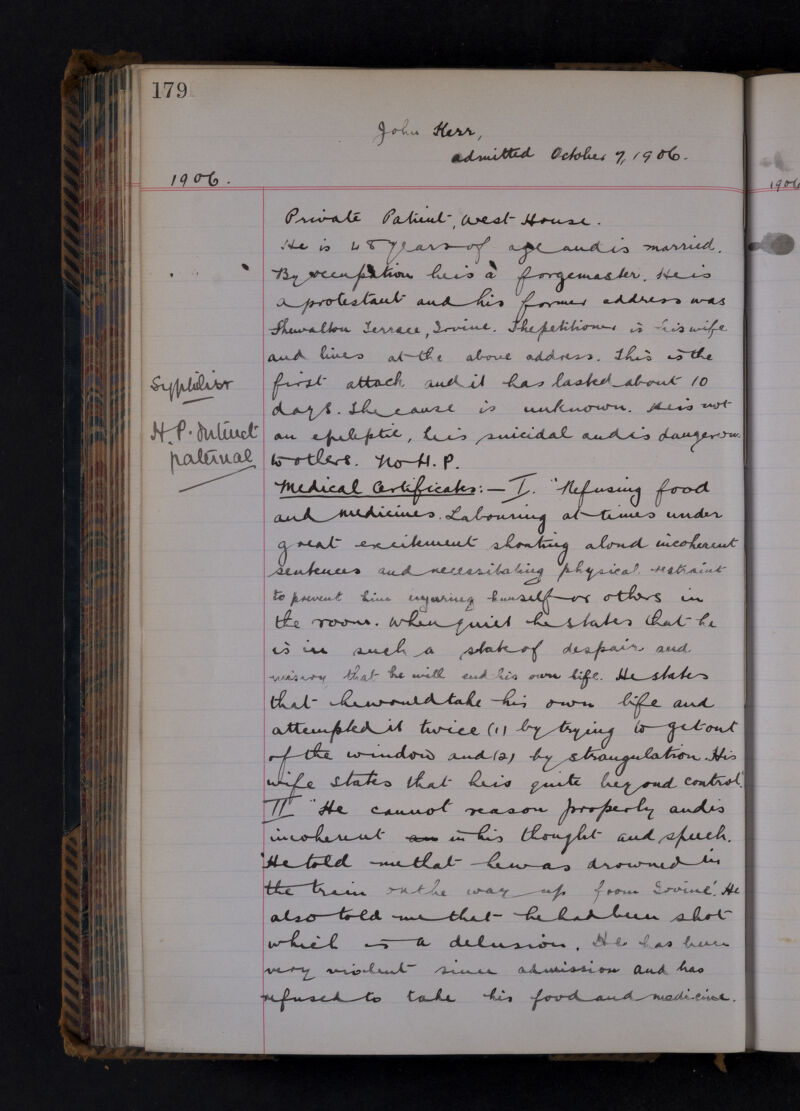 179
John Kerr,
admitted October 7, 1906.
1906.
1906
Private Patient, West House.
He is 48 years of age and is married.
By occupation he is a forgemaster. He is
a protestant and his former address was
Shewalton Terrace, Irvine. The petitioner is his wife
and lives at the above address. This is the
Syphilis
first attack and it has lasted about 10
days. The cause is unknown. He is not
H.P. distinct
an epileptic, he is suicidal and is dangerous
paternal
to others. No H.P.
Medical Certificates:— I. "Refusing food
and medicines. Labouring at times under
great excitement shouting aloud incoherent
sentences and necessitating physical restraint
to prevent him injuring himself or others in
the room. When quiet he states that he
is in such a state of despair and
misery that he will end his own life. He states
that he would take his own life and
attempted it twice (1) by trying to get out
of the window and (2) by strangulation. His
wife states that he is quite beyond control."
II "He cannot reason properly and is
incoherent an in his thought and speech.
'He told me that he was drowned in
the train on the way up from Irvine'. He
also told me that he had been shot
which is a delusion. He has been
very violent since admission and has
refused to take his food and medicine.